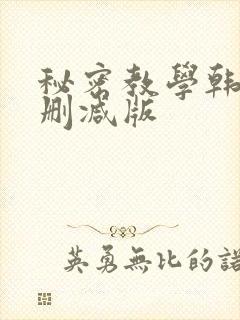 秘密教學韩
删减版
英勇無比的諾